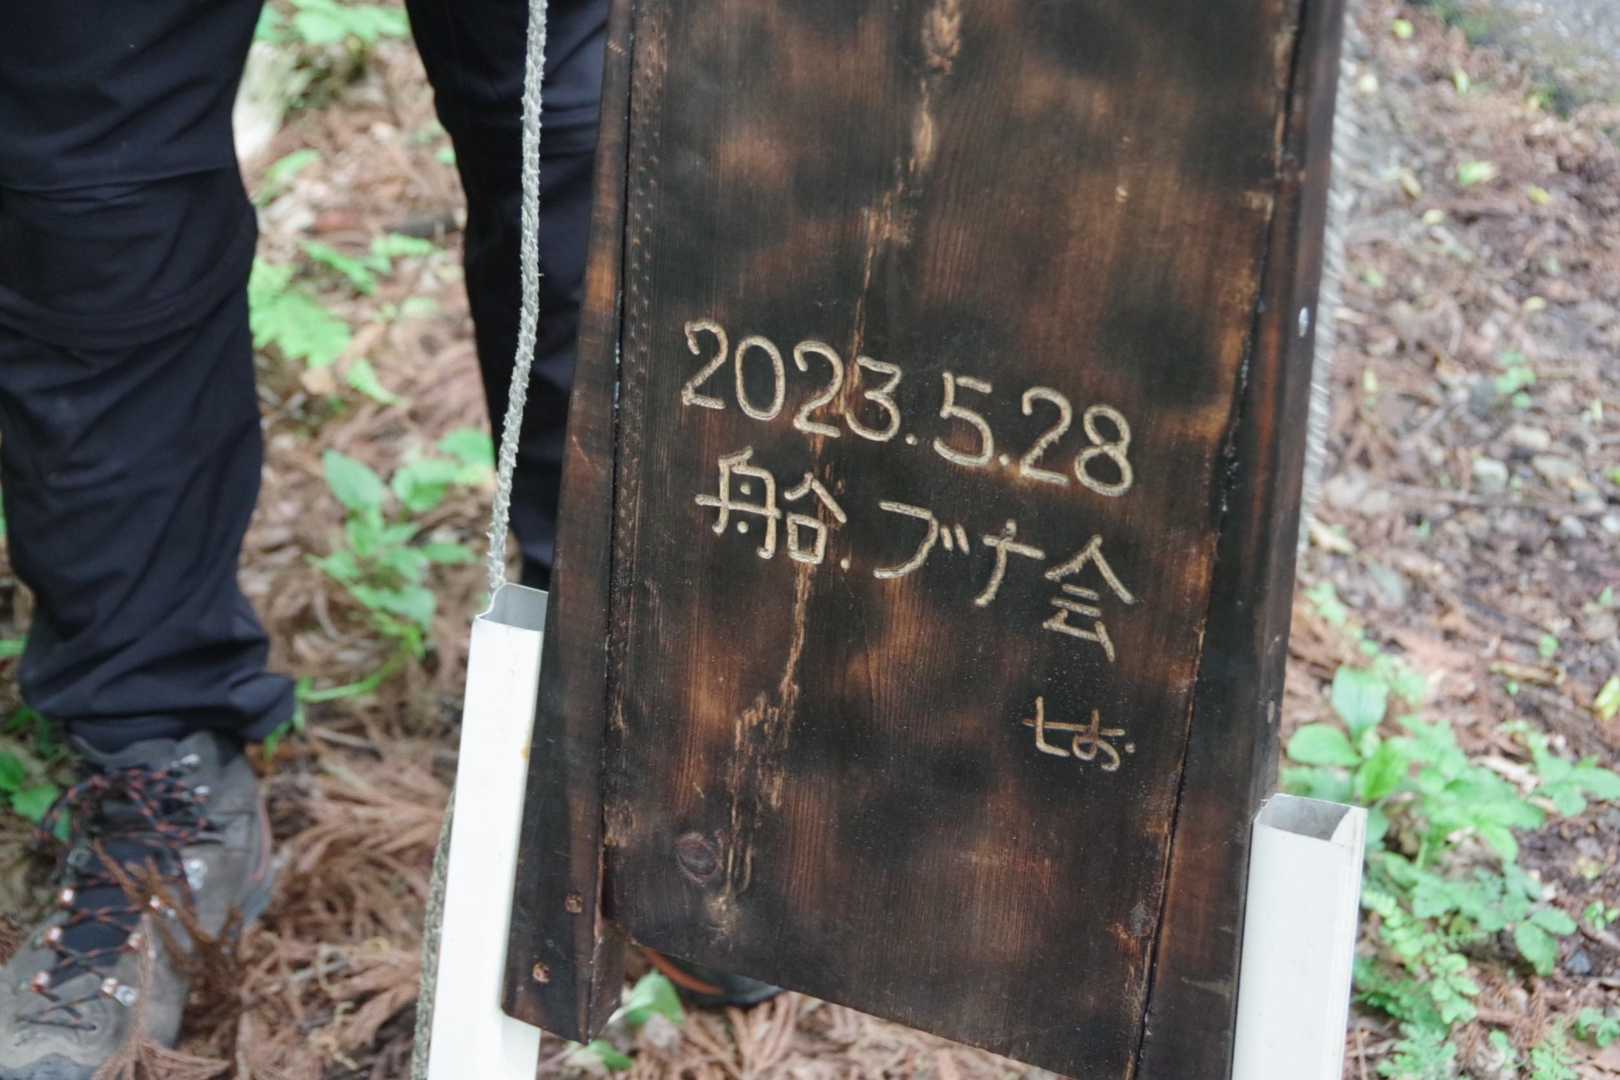 2023.5.28
船.ブナ会